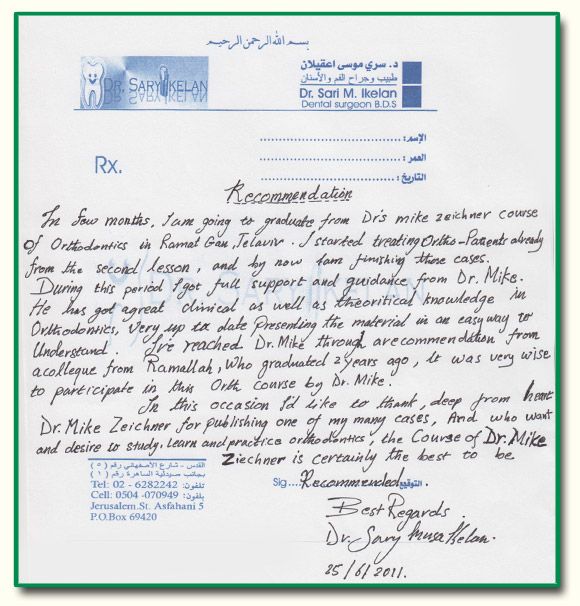 بسم الله الرحمن الرحيم
DR. SARY IKELAN
د. سري موسى اعقيلان
طبيب وجراح الفم والأسنان
Dr. Sari M. Ikelan
Dental surgeon B.D.S
الإسم:
العمر:
التاريخ:
Rx.
Recommendation
In few months, I am going to graduate from Dr's mike zeichner course
of Orthodontics in Ramat Gan, Telaviv. I started treating Ortho-Patients already
from the second lesson, and by now Iam finishing those cases.
During this period I got full support and guidance from Dr. Mike.
He has got agreat clinical as well as theoritical knowledge in
Orthodontics, Very up to date Presenting the material in an easy way to
Understand. I've reached Dr. Mike through arecommendation from
acolleque from Ramallah, Who graduated 2 years ago, it was very wise
to participate in this Orth course by Dr. Mike.
In this occasion I'd like to thank, deep from heart
Dr. Mike Zeichner for publishing one of my many cases, And who want
and desire to study, learn and practice orthodontics, the Course of Dr. Mike
Ziechner is certainly the best to be
Recommended.
القدس - شارع الأصفهاني رقم (٥)
بجانب صيدلية الساهرة رقم (١)
Tel: 02 - 6282242 تلفون:
Cell: 0504 -070949 بلفون:
Jerusalem.St. Asfahani 5
P.O.Box 69420
Sig .... التوقيع
Best Regards.
Dr. Sary Musa Ikelan.
25/6/2011.